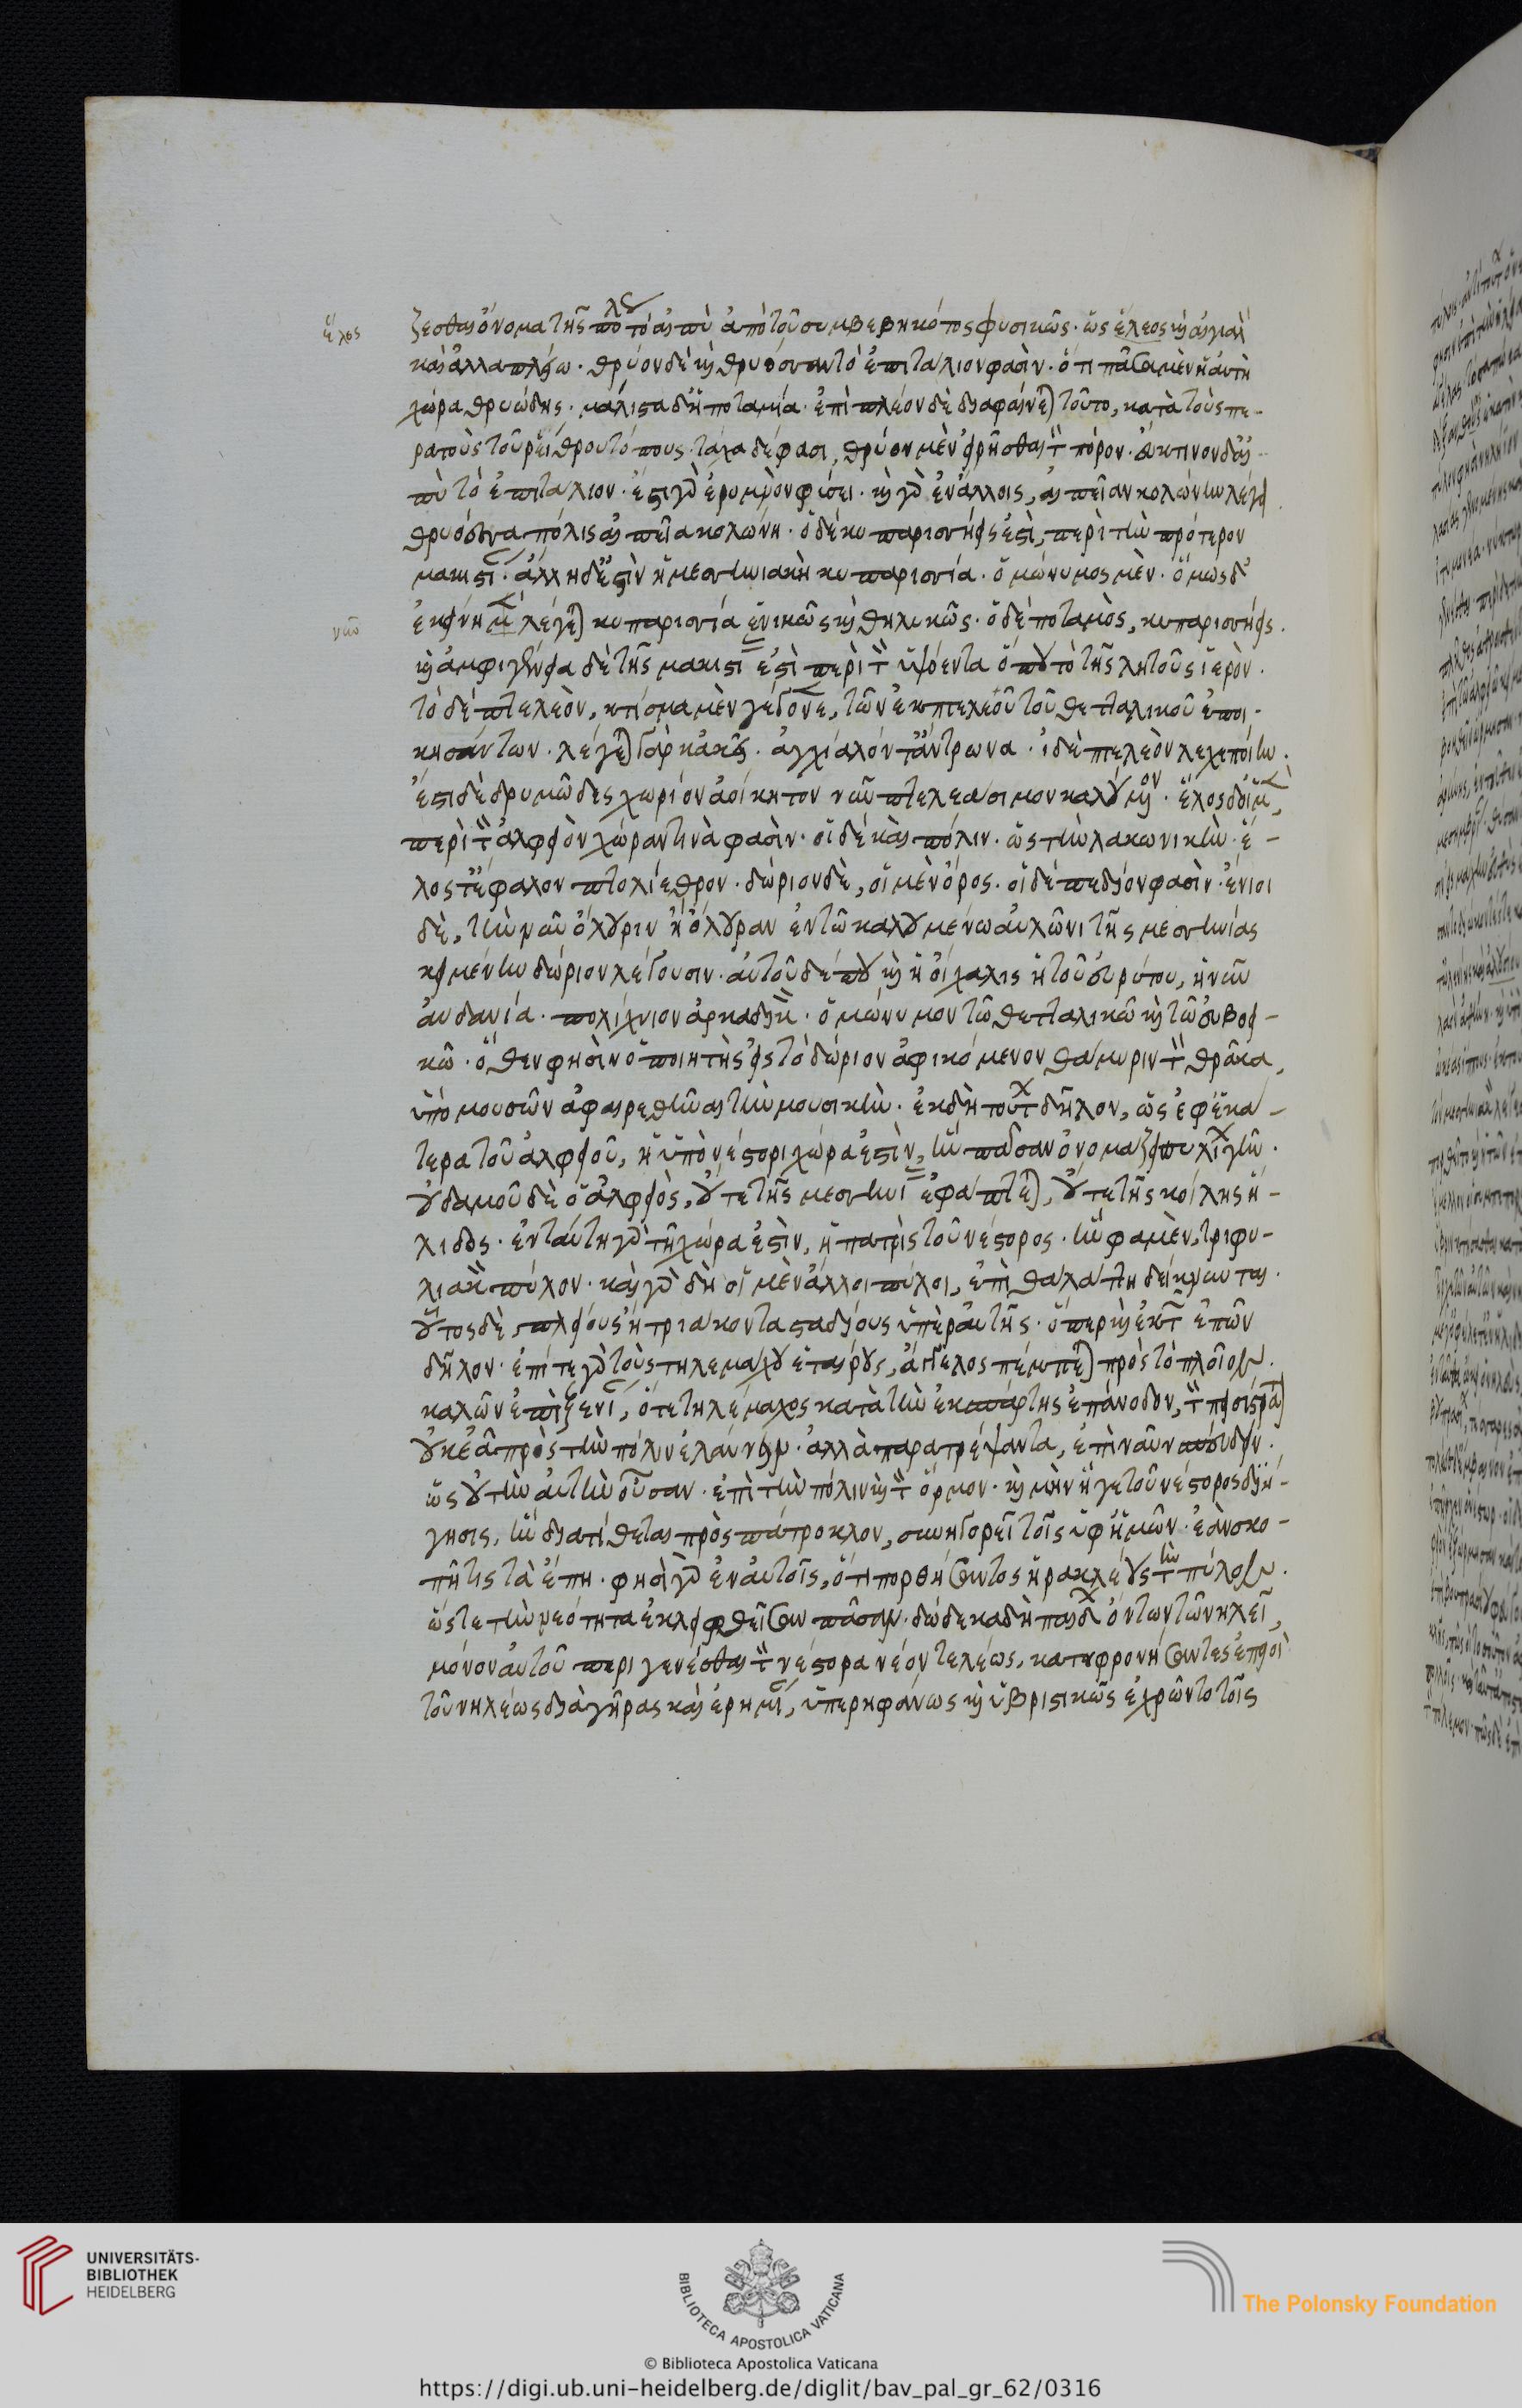 ἕλος
ζεσθαι ὄνομα τῆς πόλεως τὸ αἰπὺ ἀπὸ τοῦ συμβεβηκότος φυσικῶς· ὡς ἕλεος καὶ αἰγιαλ
καὶ ἄλλα πλείω· θρύον δὲ καὶ θρυόεσσαν τὸ ἐπιτάλιον φασὶν· ὅτι πᾶσα μὲν ἡ αὐτὴ
χώρα θρυώδης· μάλιστα δ᾽ ἡ ποταμία· ἐπὶ πλέον δὲ διαφαίνεται τοῦτο, κατὰ τοὺς πε-
ρατοὺς τοῦ ῥείθρου τόπους· τάχα δέ φασι, θρύον μὲν εἰρῆσθαι τὸν πόρον· εὔκτινον δ᾽ αἰ-
πὺ τὸ ἐπιτάλιον· ἔστι γὰρ ἐρυμνὸν φύσει· καὶ γὰρ ἐν ἄλλοις, αἰπεῖαν κολώνην λέγει
θρυόεσσα πόλις αἰπεῖα κολώνη· ὁ δὲ κυπαρισσήεις ἐστὶ, περὶ τὴν πρότερον
μακιστί· ἄλλη δ᾽ ἐστὶν ἡ μεσσηνιακὴ κυπαρισσία· ὁμώνυμος μὲν· ὅμως δ᾽
νῦν
ἐκείνη μ λέγεται κυπαρισσία ἑνικῶς καὶ θηλυκῶς· ὁ δὲ ποταμὸς, κυπαρισσήεις.
καὶ ἀμφιγένεια δὲ τῆς μακιστί ἐστὶ περὶ τὸν ὑψόεντα ὅπου τὸ τῆς λητοῦς ἱερὸν.
τὸ δὲ πτελεὸν, κτίσμα μὲν γέγονε, τῶν ἐκ πτελεοῦ τοῦ θετταλικοῦ ἐποι-
κησάντων· λέγεται γὰρ κἀκεῖ· ἀγχίαλόν τ᾽ ἄντρωνα· ἰδὲ πτελεὸν λεχεποίην.
ἔστι δὲ δρυμῶδες χωρίον ἀοίκητον νῦν πτελεάσιμον καλούμενον· ἕλος δ᾽ οἱ μ,
περὶ τὸν ἀλφειὸν χώραν τινὰ φασὶν· οἱ δὲ καὶ πόλιν· ὡς τὴν λακωνικὴν· ἕ-
λος τ᾽ ἔφαλον πτολίεθρον· δώριον δὲ, οἱ μὲν ὄρος· οἱ δὲ πεδίον φασὶν· ἔνιοι
δὲ, τὴν νῦν ὄλουριν ἢ ὄλουραν ἐν τῶ καλουμένω αὐλῶνι τῆς μεσσηνίας
κειμένην δώριον λέγουσιν· αὐτοῦ δέ που καὶ ἡ οἰχαλις ἡ τοῦ εὐρύτου, ἡ νῦν
ἀνδανία· πολίχνιον ἀρκαδικ· ὁμώνυμον τῶ θετταλικῶ καὶ τῶ εὐβοι-
κῶ· ὅθεν φησὶν ὁ ποιητὴς εἰς τὸ δώριον ἀφικόμενον θάμυριν τὸν θρᾶκα,
ὑπὸ μουσῶν ἀφαιρεθῆναι τὴν μουσικὴν· ἐκ δὴ τούτων δῆλον, ὡς ἐφ᾽ ἑκά-
τερα τοῦ ἀλφειοῦ, ἡ ὑπὸ νέστορι χώρα ἐστὶν, ἣν πᾶσαν ὀνομάζει πυλίων γῆν.
οὐδαμοῦ δὲ ὁ ἀλφειὸς, οὔτε τῆς μεσσηνί ἐφάπτεται, οὔτε τῆς κοίλης ἤ-
λιδος· ἐν ταύτη γὰρ τῆ χώρα ἐστὶν, ἡ πατρὶς τοῦ νέστορος· ἣν φαμὲν, τριφυ-
λιακ πύλον· καὶ γὰρ δὴ οἱ μὲν ἄλλοι πύλοι, ἐπὶ θαλάττη δείκνυνται.
οὗτος δὲ, πλείους ἢ τριάκοντα σταδίους ὑπὲρ αὐτῆς· ὅπερ καὶ ἐκ τ ἐπῶν
δῆλον· ἐπί τε γὰρ τοὺς τηλεμάχου ἑταίρους, ἄγγελος πέμπεται πρὸς τὸ πλοῖον.
καλῶν ἐπὶ ξενί, ὅ τε τηλέμαχος κατὰ τὴν ἐκ σπάρτης ἐπάνοδον, τὸν πεισίστρα
οὐκ ἐᾶ πρὸς τὴν πόλιν ἐλαύνειν· ἀλλὰ παρατρέψαντα, ἐπὶ ναῦν σπεύδειν.
ὡς οὐ τὴν αὐτὴν οὖσαν· ἐπὶ τὴν πόλιν καὶ τὸν ὅρμον· καὶ μὴν ἥ γε τοῦ νέστορος διή-
γησις, ἣν διατίθεται πρὸς πάτροκλον, συνηγορεῖ τοῖς ὑφ᾽ ἡμῶν· ἐὰν σκο-
πῆ τις τὰ ἔπη· φησὶ γὰρ ἐν αὐτοῖς, ὅτι πορθήσαντος ἡρακλέους τὴν πύλον.
ὥστε τὴν νεότητα ἐκλειφθεῖσαν πᾶσαν· δώδεκα δὴ παίδων ὄντων τῶν νηλεῖ,
μόνον αὐτοῦ περιγενέσθαι τὸν νέστορα νέον τελέως, καταφρονήσαντες ἐπειοὶ
τοῦ νηλέως διὰ γῆρας καὶ ἐρημί, ὑπερηφάνως καὶ ὑβριστικῶς ἐχρῶντο τοῖς
UNIVERSITÄTS-
BIBLIOTHEK
HEIDELBERG
BIBLIOTECA APOSTOLICA VATICANA
© Biblioteca Apostolica Vaticana
The Polonsky Foundation
https://digi.ub.uni-heidelberg.de/diglit/bav_pal_gr_62/0316